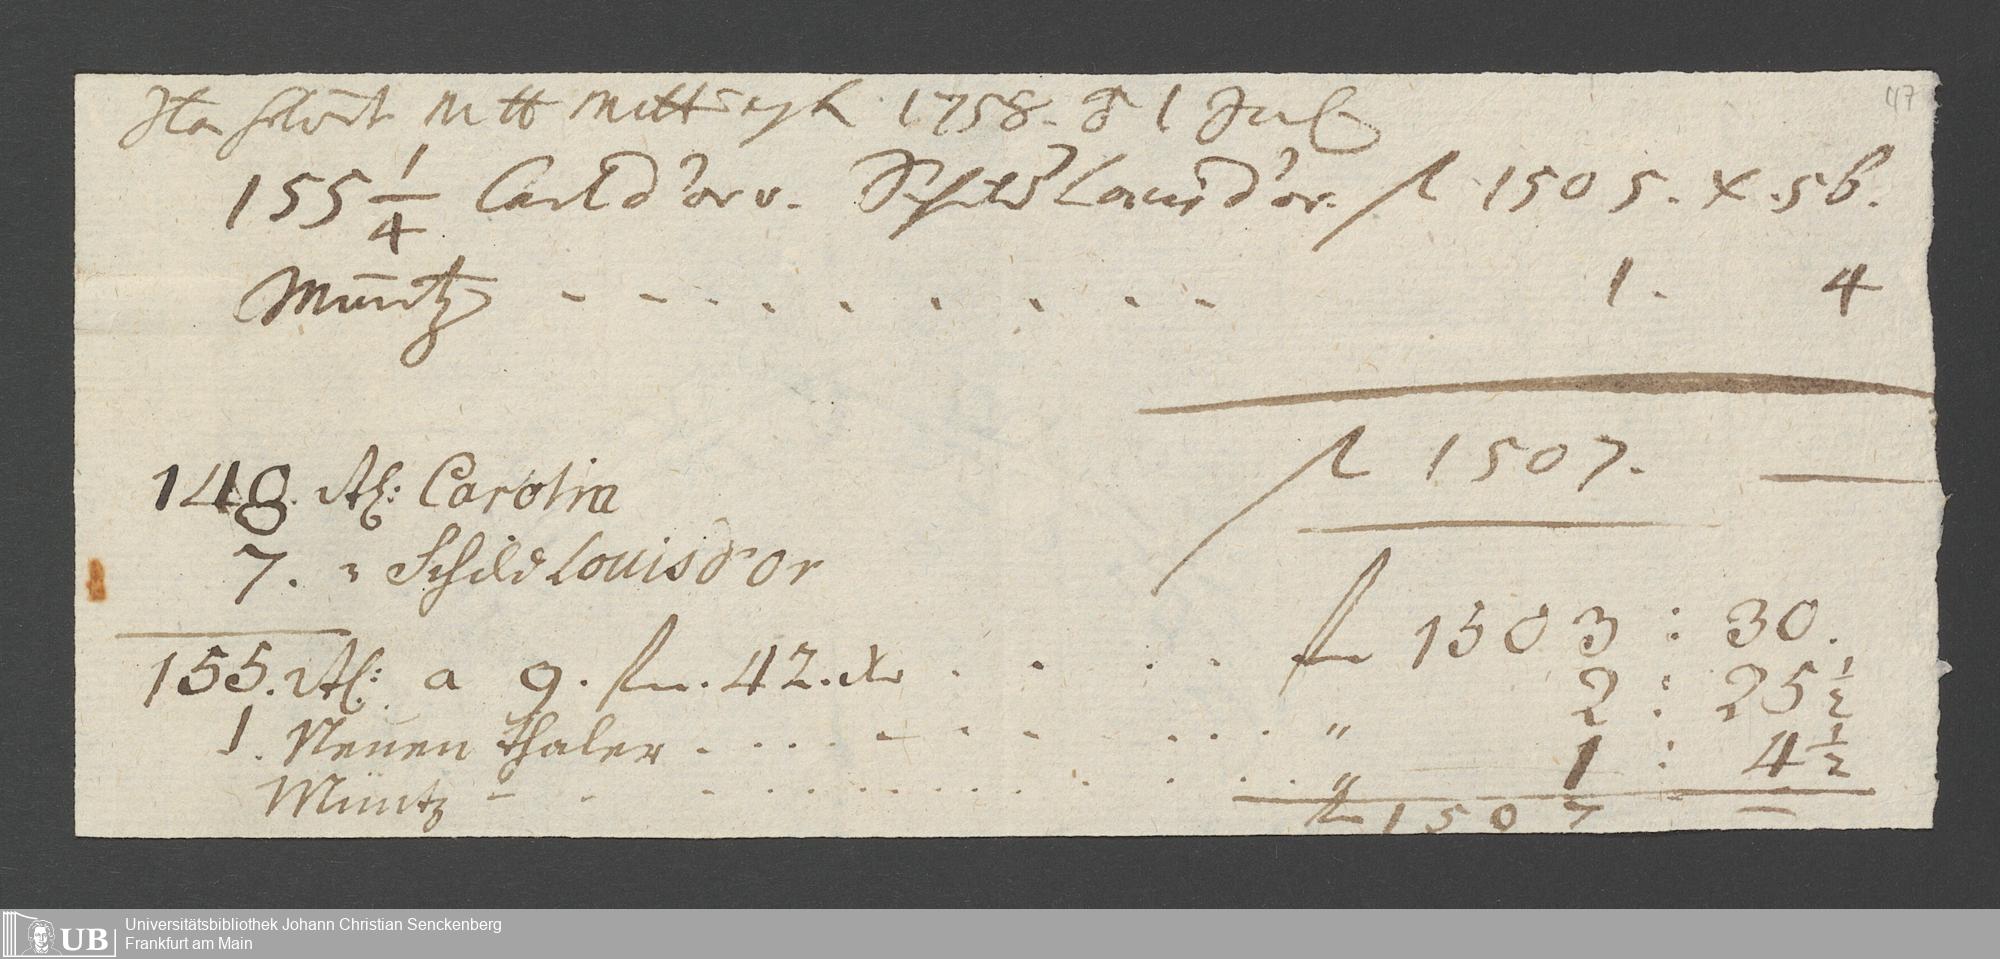 47
Ita solvit M tt Mitt 1758. d 1 July
155 1/4 Carl d'or v. Schild Louis d'or. fl 1505. x. 56.
Müntz - - - - - - - - - 1. 4
fl 1507. —
148. St: Carolin
7. " Schild Louisd'Or
155. St: a 9. fl. 42. xr . . . . fl 1503 : 30.
1. Neuen thaler . . . . - . . . . . . " 2 : 25 1/2
Müntz - . . . . . . . . . . . . " 1 : 4 1/2
fl 1507 —
UB
Universitätsbibliothek Johann Christian Senckenberg
Frankfurt am Main